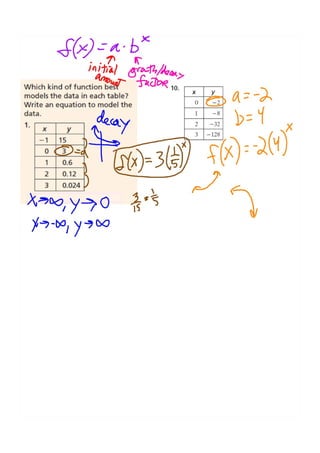 f(x) = a · b^x
initial amount
growth/decay factor
Which kind of function best
models the data in each table?
Write an equation to model the
data.
1.
x y
−1 15
0 3 = a
1 0.6
2 0.12
3 0.024
decay
f(x) = 3(1/5)^x
3/15 = 1/5
x→∞, y→0
x→-∞, y→∞
10.
x y
0 −2
1 −8
2 −32
3 −128
a = -2
b = 4
f(x) = -2(4)^x